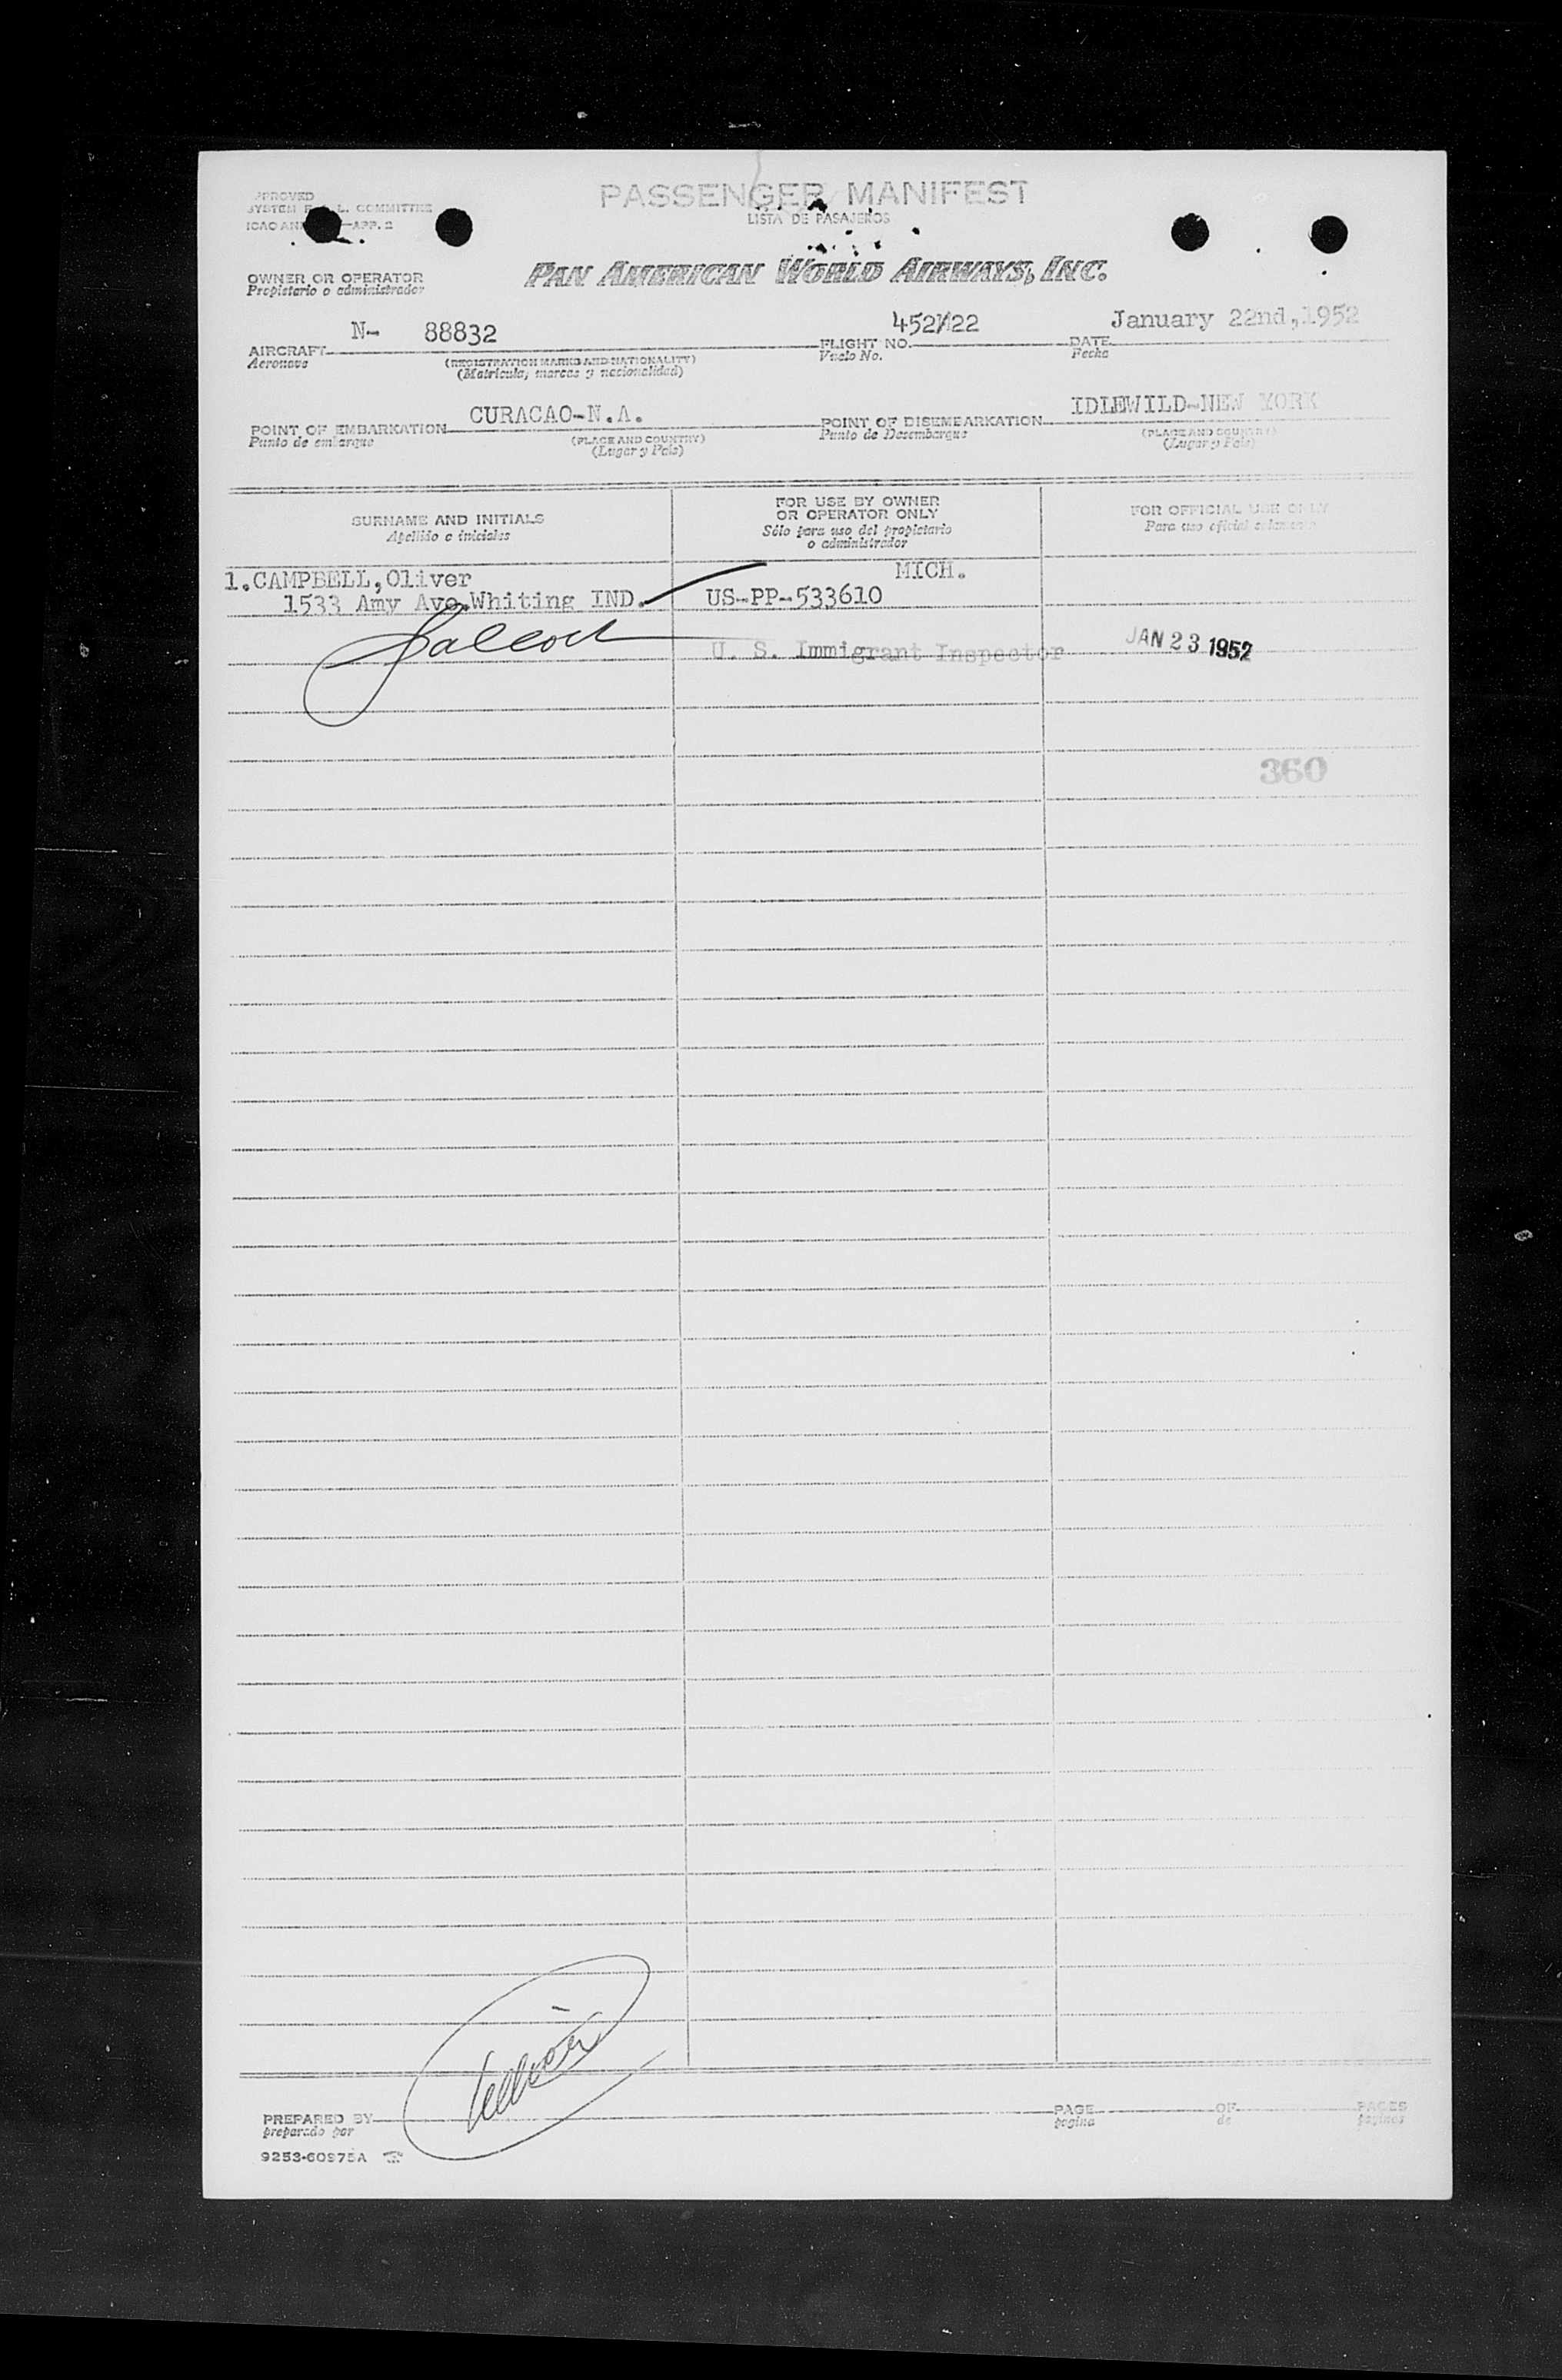 PASSENGER MANIFEST
LISTA DE PASAJEROS
APPROVED
SYSTEM F. L. COMMITTEE
ICAO AN APP. 2
PAN AMERICAN WORLD AIRWAYS, INC.
OWNER OR OPERATOR
Propietario o administrador
AIRCRAFT N- 88832 FLIGHT NO. 452/122 DATE January 22nd,1952
Aeronave (REGISTRATION MARKS AND NATIONALITY) Vuelo No. Fecha
(Matricula, marcas y nacionalidad)
POINT OF EMBARKATION CURACAO-N.A. POINT OF DISEMBARKATION IDLEWILD-NEW YORK
Punto de embarque (PLACE AND COUNTRY) Punto de Desembarque (PLACE AND COUNTRY)
(Lugar y País) (Lugar y País)
SURNAME AND INITIALS FOR USE BY OWNER OR OPERATOR ONLY FOR OFFICIAL USE ONLY
Apellido e iniciales Sólo para uso del propietario o administrador Para uso oficial solamente
1.CAMPBELL,Oliver MICH.
1533 Amy Ave.Whiting IND. US-PP-533610
U. S. Immigrant Inspector JAN 23 1952
360
PREPARED BY PAGE OF PAGES
preparado por página de páginas
9253-60975A